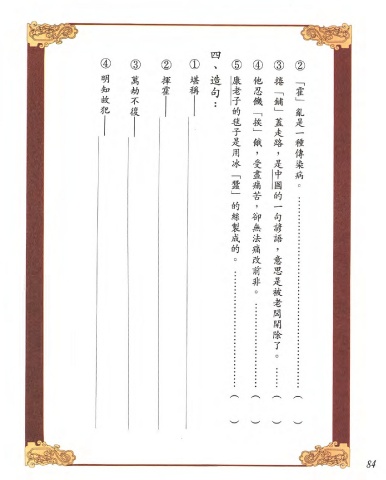 ②「霍」亂是一種傳染病。……………………………( )
③捲「鋪」蓋走路，是中國的一句諺語，意思是被老闆開除了。……( )
④他忍饑「挨」餓，受盡痛苦，卻無法痛改前非。………………( )
⑤康老子的毯子是用冰「蠶」的絲製成的。…………………( )
四、造句：
①堪稱——
②揮霍——
③萬劫不復——
④明知故犯——
84